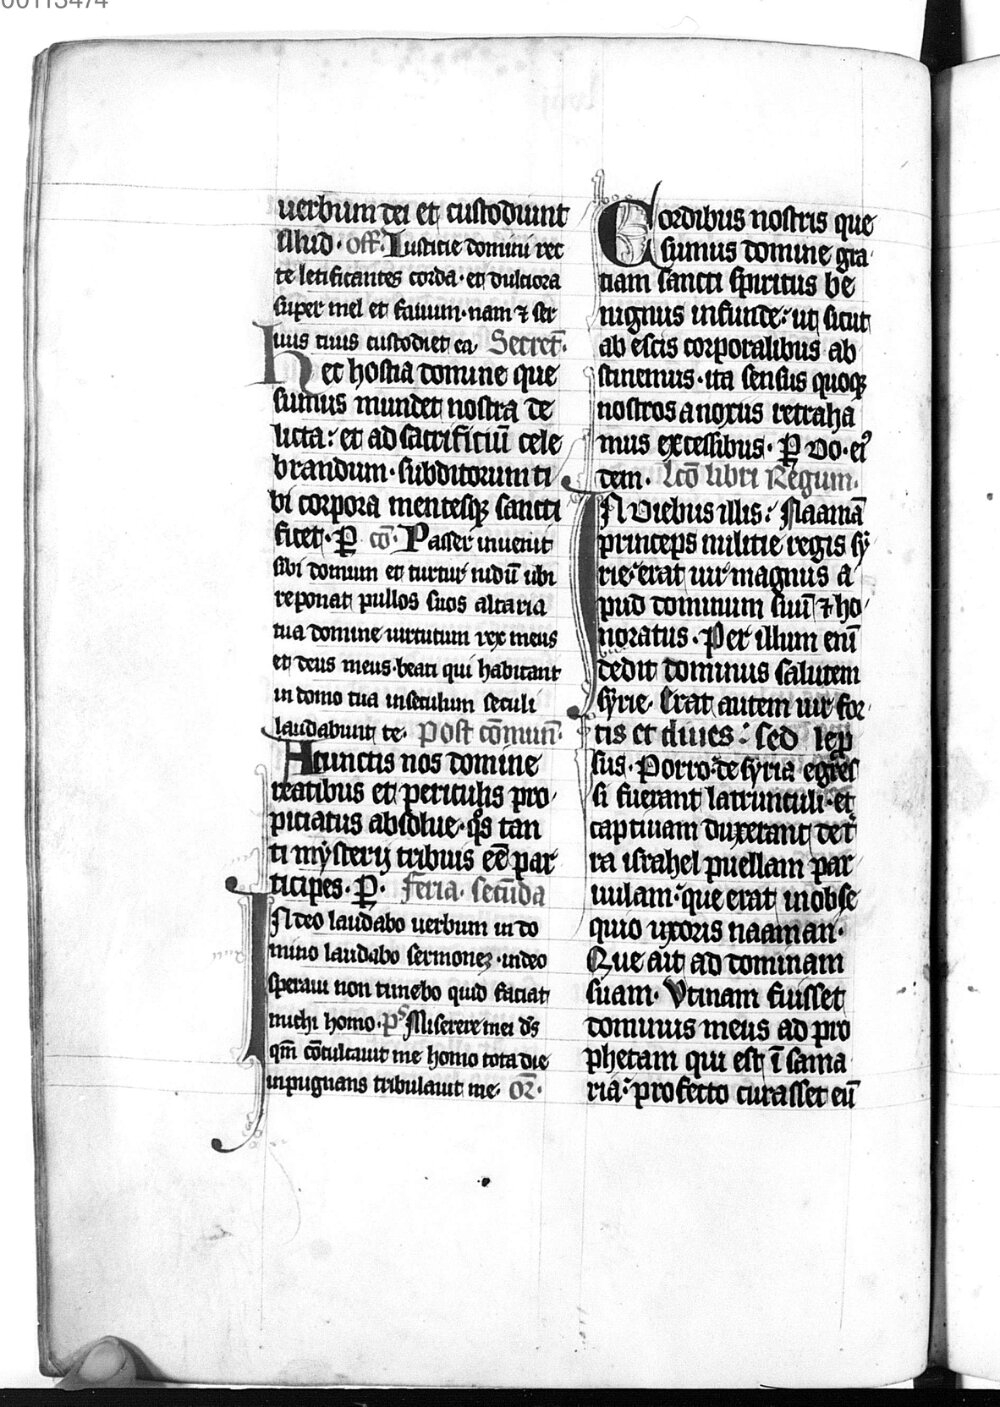 00113474
uerbum dei et custodiunt
illud. off. Iusticie domini rec
te letificantes corda. et dulciora
super mel et fauum. nam ⁊ ser
uus tuus custodiet ea. Secret̄.
Hec hostia domine que
sumus mundet nostra de
licta: et ad sacrificiū cele
brandum. subditorum ti
bi corpora mentesqꝫ sancti
ficet. ꝑ cō. Passer inuenit
sibi domum et turtur nidū ubi
reponat pullos suos altaria
tua domine uirtutum rex meus
et deus meus. beati qui habitant
in domo tua in seculum seculi
laudabunt te. Post cōmun̄.
A cunctis nos domine
reatibus et periculis pro
piciatus absolue. qs̄ tan
ti mysterij tribuis eē par
ticipes. ꝑ. feria. secūda
IN deo laudabo uerbum in do
mino laudabo sermonez. in deo
speraui non timebo quid faciat
michi homo. ps̄ Miserere mei ds̄
qm̄ cōculcauit me homo tota die
inpugnans tribulauit me. or̄.
Cordibus nostris que
sumus domine gra
tiam sancti spiritus be
nignus infunde: ut sicut
ab escis corporalibus ab
stinemus. ita sensus quoqꝫ
nostros a noxiis retraha
mus excessibus. ꝑ do. ei9
dem. Lcō libri Regum.
IN diebus illis: Naamā
princeps militie regis sy
rie. erat uir magnus a
pud dominum suū ⁊ ho
noratus. Per illum enī
dedit dominus salutem
syrie. Erat autem uir for
tis et diues: sed lep
sus. Porro de syria egres
si fuerant latrunculi. et
captiuam duxerant de t̄
ra israhel puellam par
uulam. que erat in obse
quio uxoris naaman.
Que ait ad dominam
suam. Vtinam fuisset
dominus meus ad pro
phetam qui est ī sama
ria. profecto curasset eū